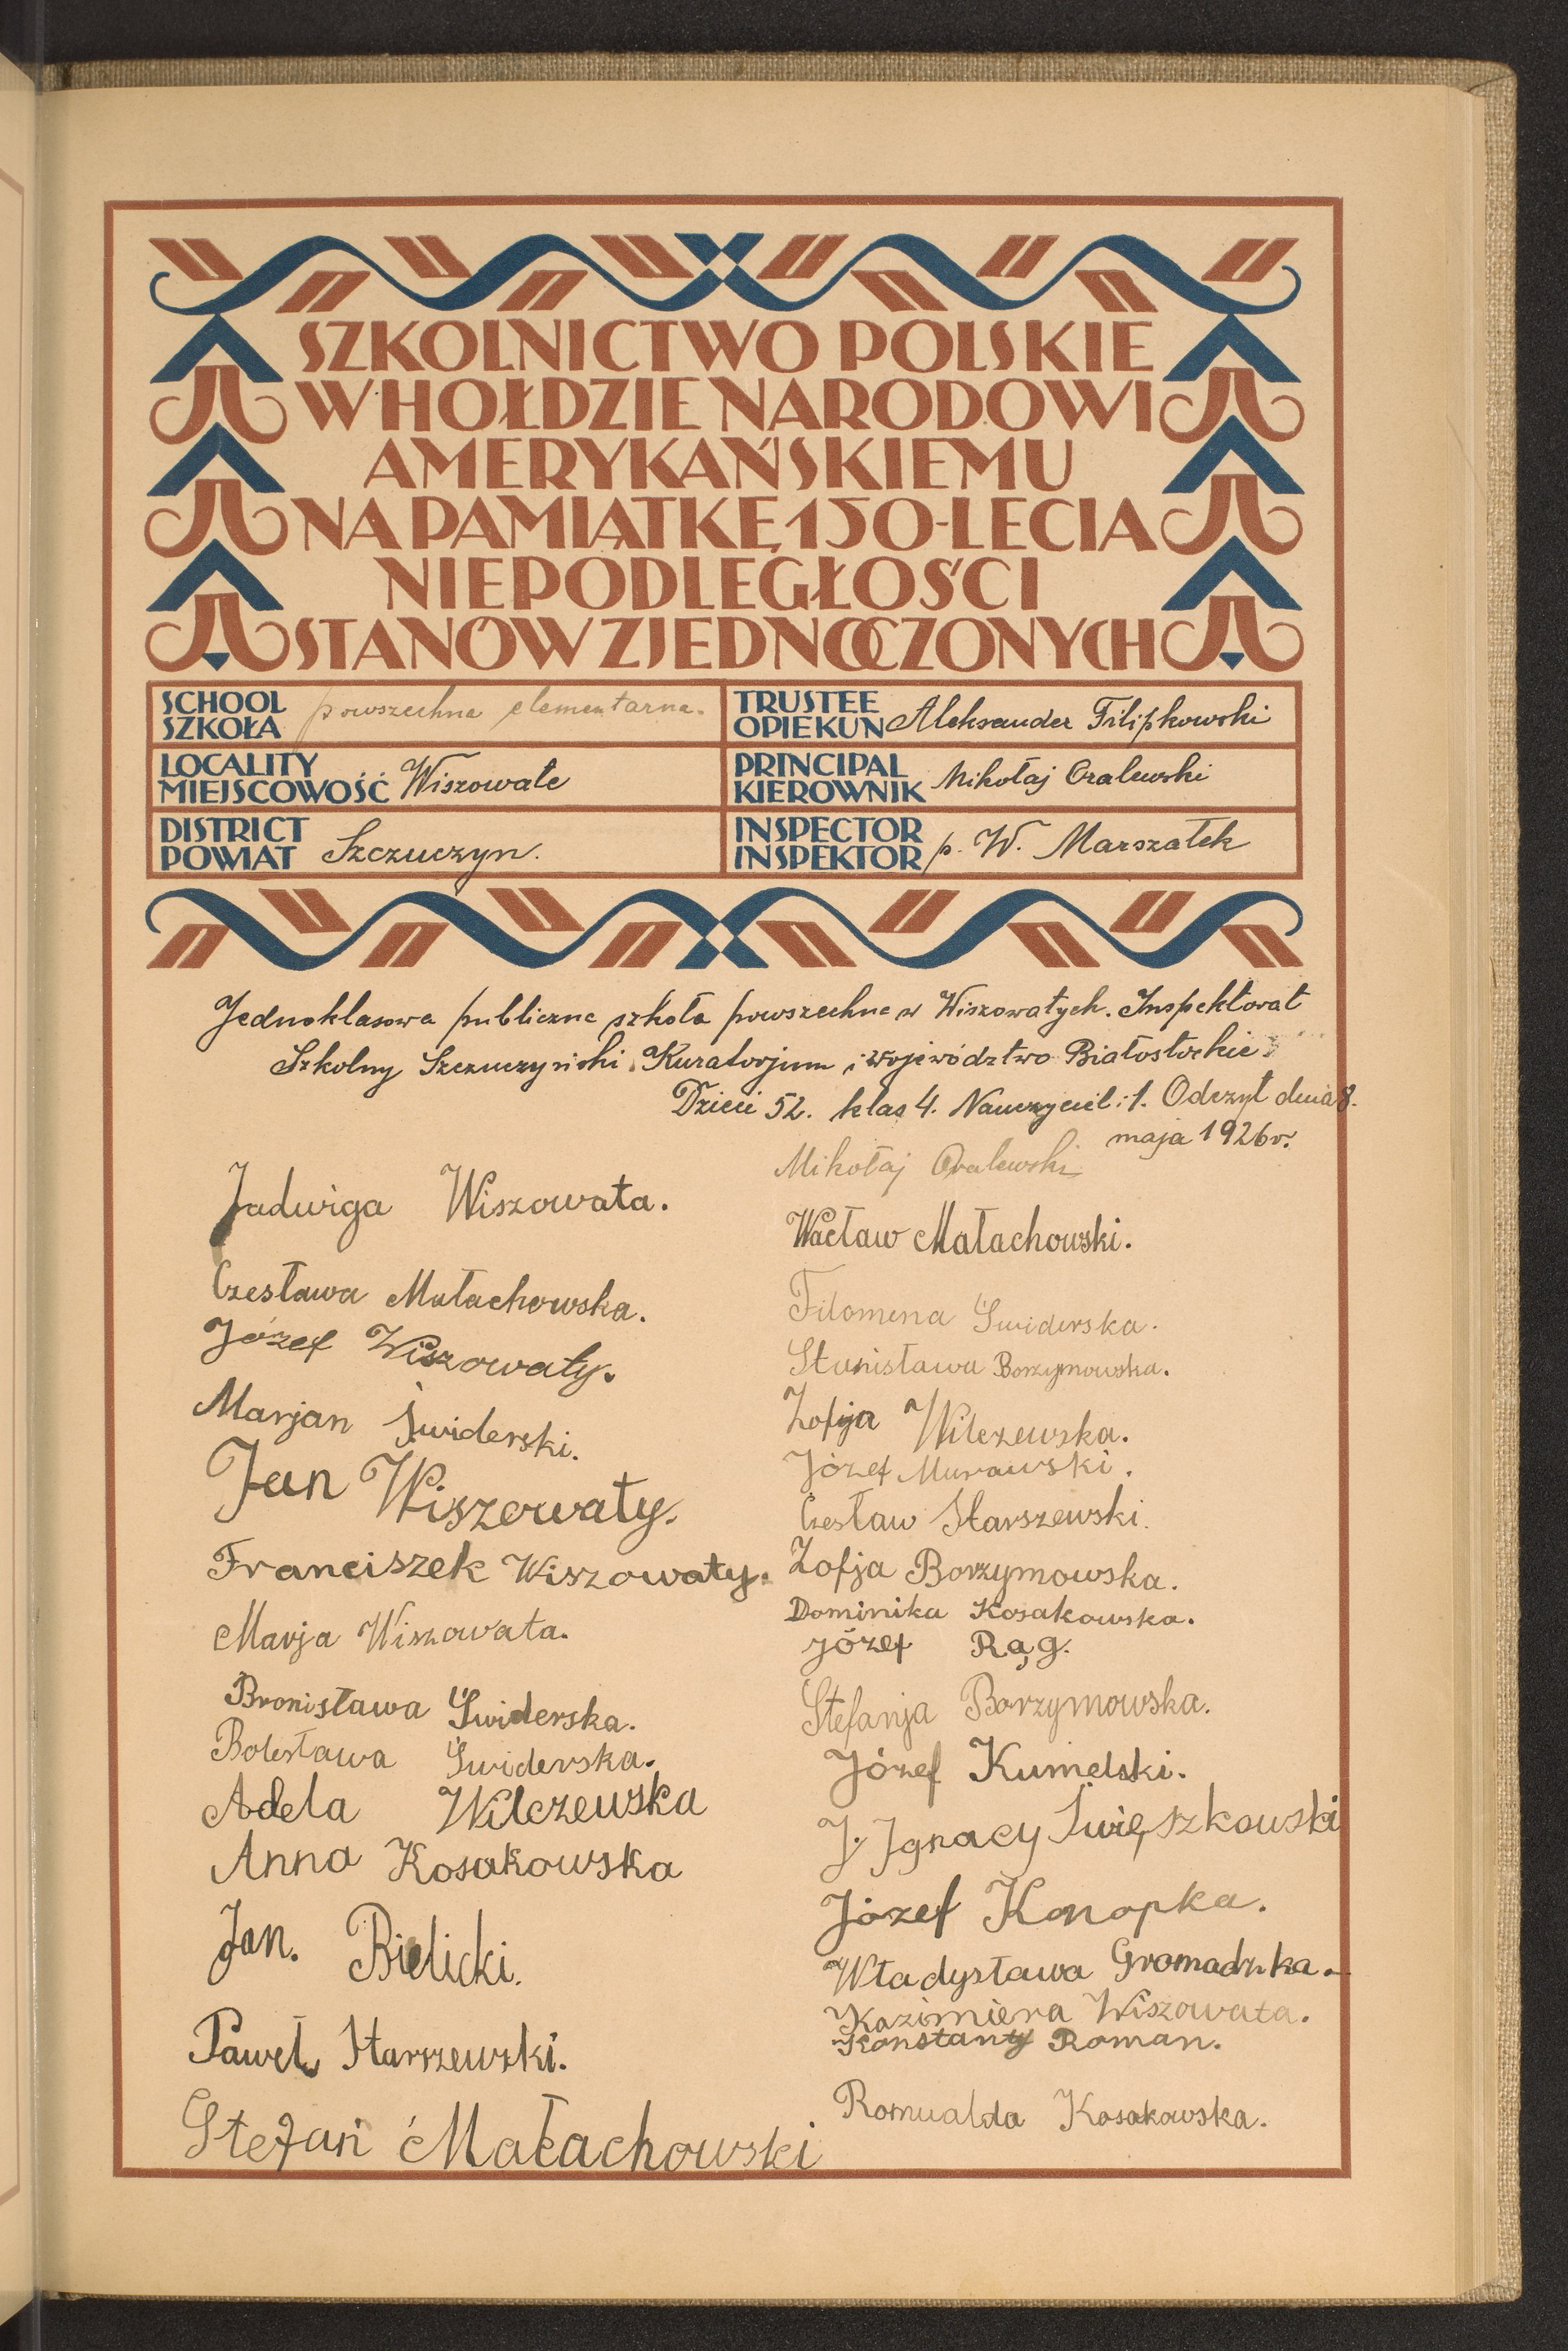 SZKOLNICTWO POLSKIE
W HOŁDZIE NARODOWI
AMERYKAŃSKIEMU
NA PAMIĄTKĘ 150-LECIA
NIEPODLEGŁOŚCI
STANÓW ZJEDNOCZONYCH
SCHOOL
SZKOŁA powszechna elementarna.
TRUSTEE
OPIEKUN Aleksander Filipkowski
LOCALITY
MIEJSCOWOŚĆ Wiszowate
PRINCIPAL
KIEROWNIK Mikołaj Oralewski
DISTRICT
POWIAT Szczuczyn.
INSPECTOR
INSPEKTOR p. W. Marszałek
Jednoklasowa publiczna szkoła powszechna w Wiszowatych. Inspektorat
Szkolny Szczuczyński, Kuratorjum i województwo Białostockie.
Dzieci 52. klas 4. Nauczycieli: 1. Odczyt dnia 8.
maja 1926 r.
Jadwiga Wiszowata.
Czesława Małachowska.
Józef Wiszowaty.
Marjan Świderski.
Jan Wiszowaty.
Franciszek Wiszowaty.
Marja Wiszowata.
Bronisława Świderska.
Bolesława Świderska.
Adela Wilczewska
Anna Kosakowska
Jan. Bielicki.
Paweł Starszewski.
Stefan Małachowski
Mikołaj Oralewski
Wacław Małachowski.
Filomena Świderska.
Stanisława Borzymowska.
Zofija Wilczewska.
Józef Murawski.
Czesław Starszewski.
Zofja Borzymowska.
Dominika Kosakowska.
Józef Rąg.
Stefanja Borzymowska.
Józef Kumelski.
J. Ignacy Święszkowski
Józef Konopka.
Władysława Gromadzka.
Kazimiera Wiszowata.
Konstanty Roman.
Romualda Kosakowska.